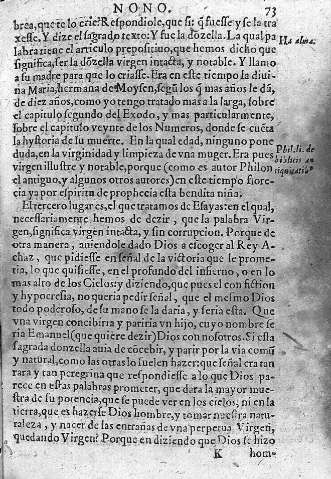 NONO. 73
brea, que te lo crie? Respondiole, que si: q̃ fuesse y se la tra
xesse. Y dize el sagrado texto: Y fue la dõzella. La qual pa
labra tiene el articulo prepositiuo, que hemos dicho que
significa, ser la dõzella virgen intacta, y notable. Y llamo
a su madre para que lo criasse. Era en este tiempo la diui-
na Maria, hermana de Moysen, segũ los q̃ mas años le dã,
de diez años, como yo tengo tratado mas a la larga, sobre
el capitulo segundo del Exodo, y mas particularmente,
sobre el capitulo veynte de los Numeros, donde se cuẽta
la hystoria de su muerte. En la qual edad, ninguno pone
duda, en la virginidad y limpieza de vna muger. Era pues
virgen illustre y notable, porque (como es autor Philon
el antiguo, y algunos otros autores) en este tiempo flore-
cia ya por espiritu de prophecia esta bendita niña.
El tercero lugar es, el que tratamos de Esayas: en el qual,
necessariamente hemos de dezir, que la palabra Vir-
gen, significa virgen intacta, y sin corrupcion. Porque de
otra manera, auiendole dado Dios a escoger al Rey A-
chaz, que pidiesse en señal de la victoria que se prome-
tia, lo que quisiesse, en el profundo del infierno, o en lo
mas alto de los Cielos: y diziendo, que pues el con fiction
y hypocresia, no queria pedir señal, que el mesmo Dios
todo poderoso, de su mano se la daria, y seria esta. Que
vna virgen concibiria y pariria vn hijo, cuyo nombre se
ria Emanuel (que quiere dezir) Dios con nosotros. Si esta
sagrada donzella auia de cõcebir, y parir por la via comũ
y natural, como las otras lo suelen hazer: que señal era tan
rara y tan peregrina que respondiesse a lo que Dios pa-
rece en estas palabras prometer, que dera la mayor mue-
stra de su potencia, que se puede ver en los cielos, ni en la
tierra, que es hazerse Dios hombre, y tomar nuestra natu-
raleza, y nacer de las entrañas de vna perpetua Virgen,
quedando Virgen? Porque en diziendo que Dios se hizo
K hom-
Ha alma.
Phil. li. de
antiquitatib.